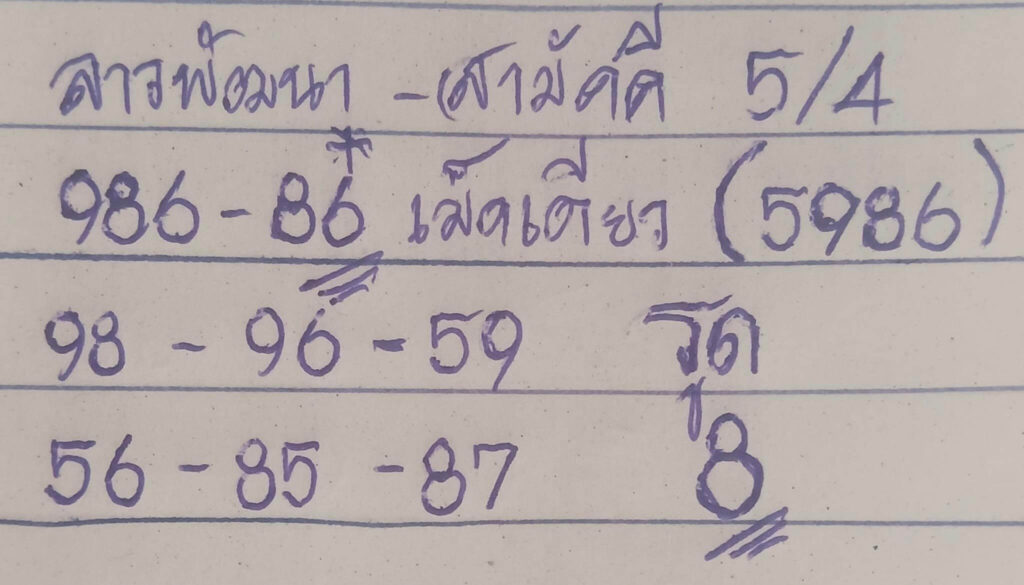 ลาวพัฒนา - สามัคคี 5/4
986 - 86 * เม็ดเดียว (5986)
98 - 96 - 59 รูด
56 - 85 - 87 8